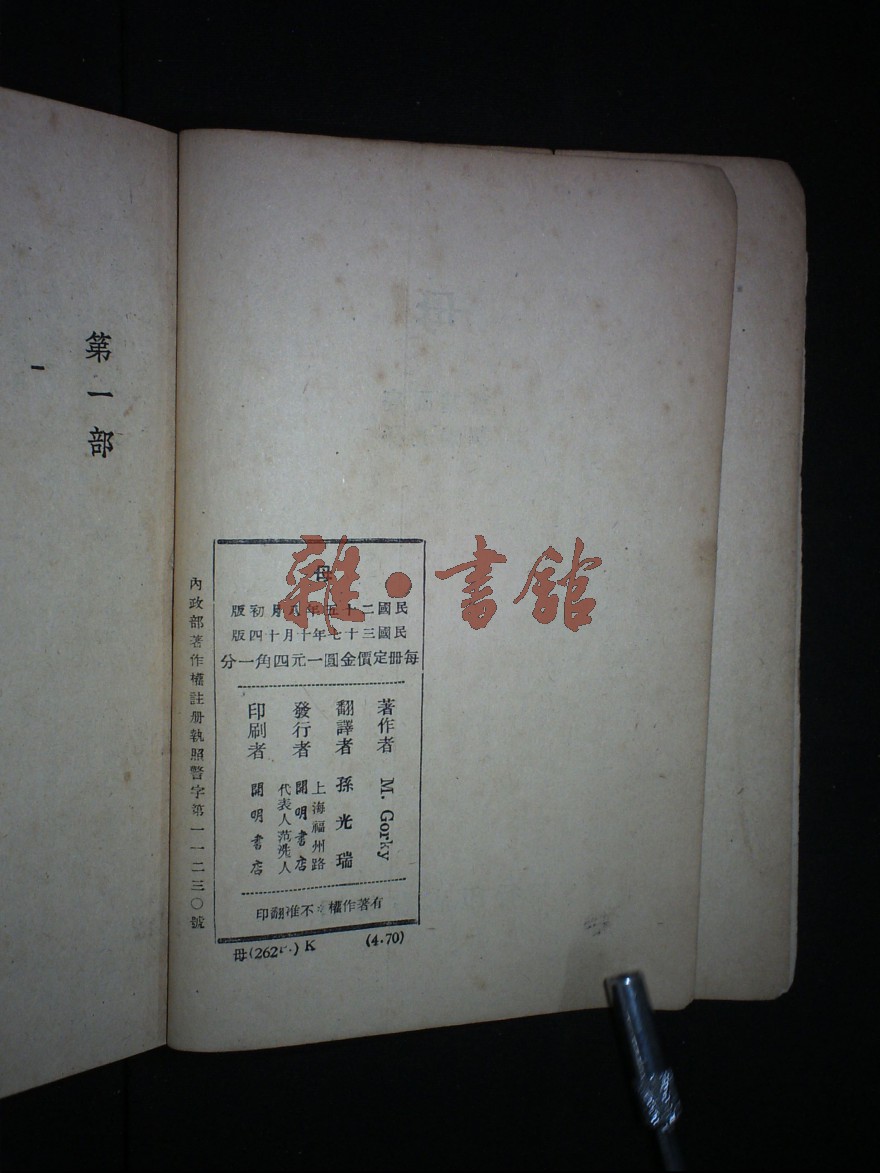 母
民國二十五年八月初版
民國三十七年十月十四版
每册定價金圓一元四角一分
著作者 M. Gorky
翻譯者 孫光瑞
上海福州路
發行者 開明書店
代表人范洗人
印刷者 開明書店
有著作權 不准翻印
母(262 ) K (4·70)
內政部著作權註册執照警字第一一二三〇號
第一部
一
雜·書館